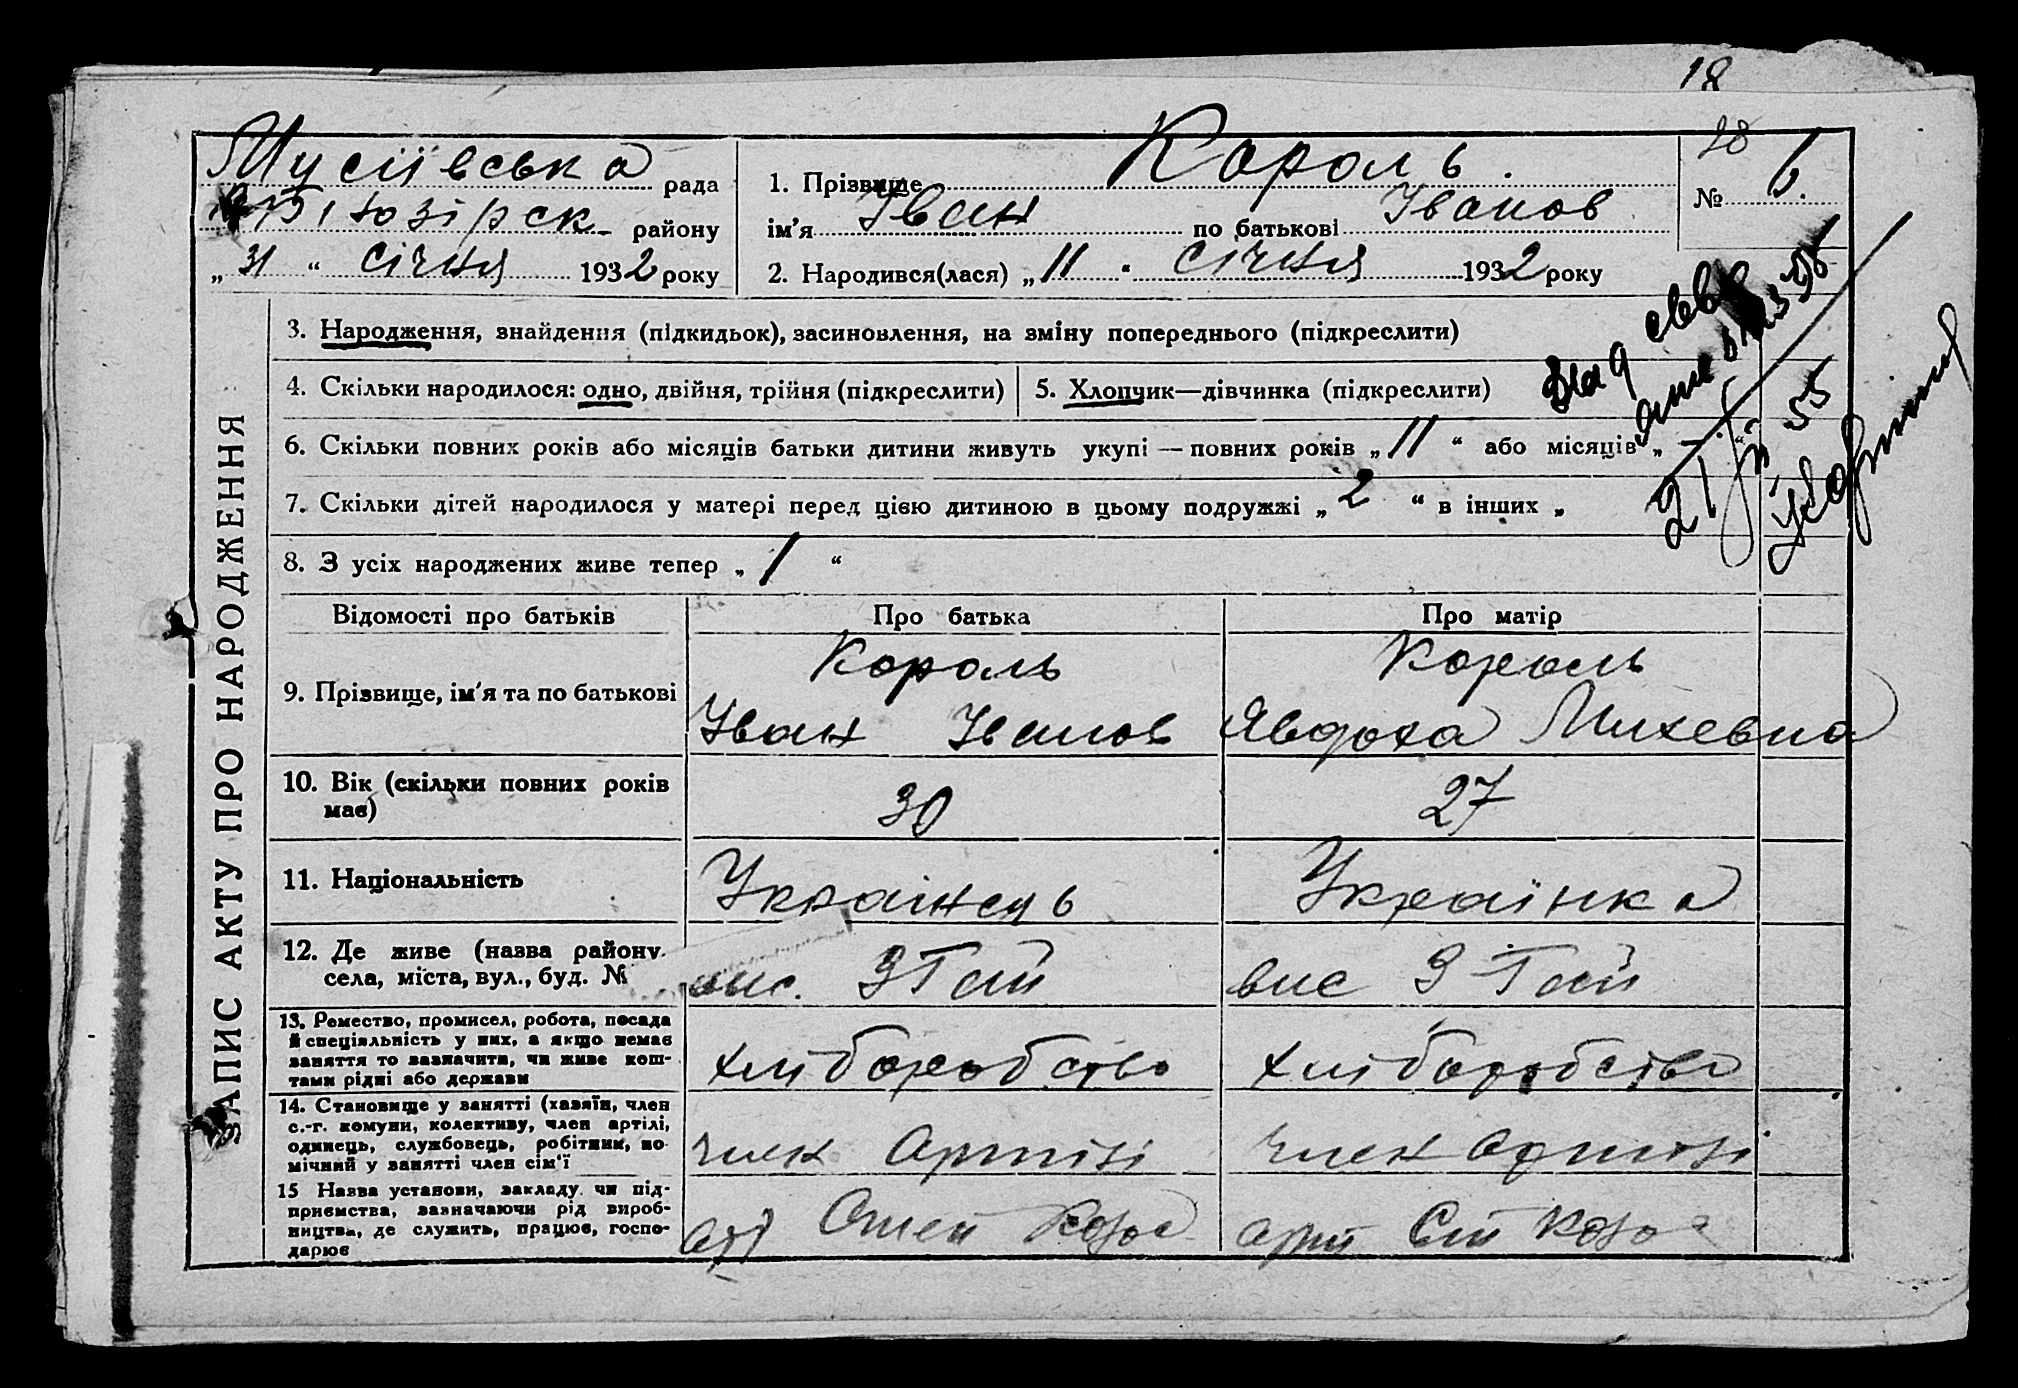 18
28
Мусіївська рада
Білозірськ района
„ 31 “ січня 1932 року
1. Прізвище Король.
ім'я Іван по батькові Іванов
2. Народився(лася) „ 11 “ січня 1932 року
№ 6.
ЗАПИС АКТУ ПРО НАРОДЖЕННЯ
3. Народження, знайдення (підкидьок), засиновлення, на зміну попереднього (підкреслити)
4. Скільки народилося: одно, двійня, трійня (підкреслити)
5. Хлопчик—дівчинка (підкреслити)
6. Скільки повних років або місяців батьки дитини живуть укупі — повних років „ 11 “ або місяців „ — “
7. Скільки дітей народилося у матері перед цією дитиною в цьому подружжі „ 2 “ в інших „
8. З усіх народжених живе тепер „ 1 “
21 55
Відомості про батьків
Про батька
Про матір
9. Прізвище, ім'я та по батькові
Король
Іван Іванов
Король
Явдоха Михевна
10. Вік (скільки повних років
має)
30
27
11. Національність
Українець
Українка
12. Де живе (назва району
села, міста, вул., буд. №
вис. 3 Гай
вис 3 Гай
13. Ремество, промисел, робота, посада
й спеціяльність у них, а якщо немає
заняття то зазначити, чи живе кош-
тами рідні або держави
хліборобство
хліборобство
14. Становище у занятті (хазяїн, член
с.-г. комуни, колективу, член артілі,
одинець, службовець, робітник, по-
мічний у занятті член сім'ї
член артілі
член артілі
15 Назва установи, закладу чи під-
приємства, зазначаючи рід вироб-
ництва, де служить, працює, госпо-
дарює
арт
арт